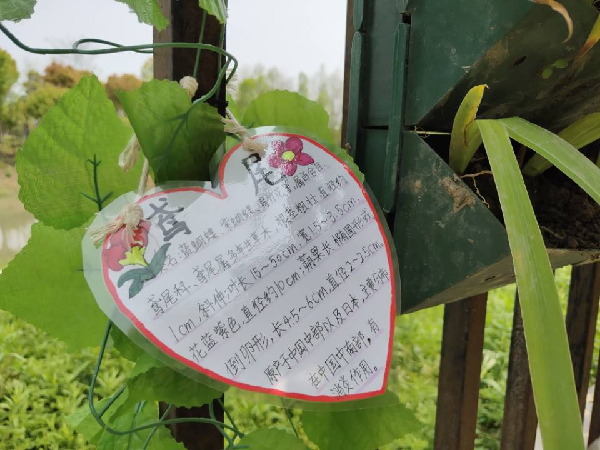 鸢尾
名:蓝蝴蝶、紫蝴蝶、扁竹花等,属百合目、
鸢尾科,鸢尾属多年生草本,根茎粗壮,直径约
1cm,斜伸;叶长15~50cm,宽1.5~3.5cm,
花蓝紫色,直径约10cm;蒴果长椭圆形或
倒卵形,长4.5~6cm,直径2~2.5cm。
原产于中国中部以及日本,主要分布
在中国中南部,有
消炎作用。